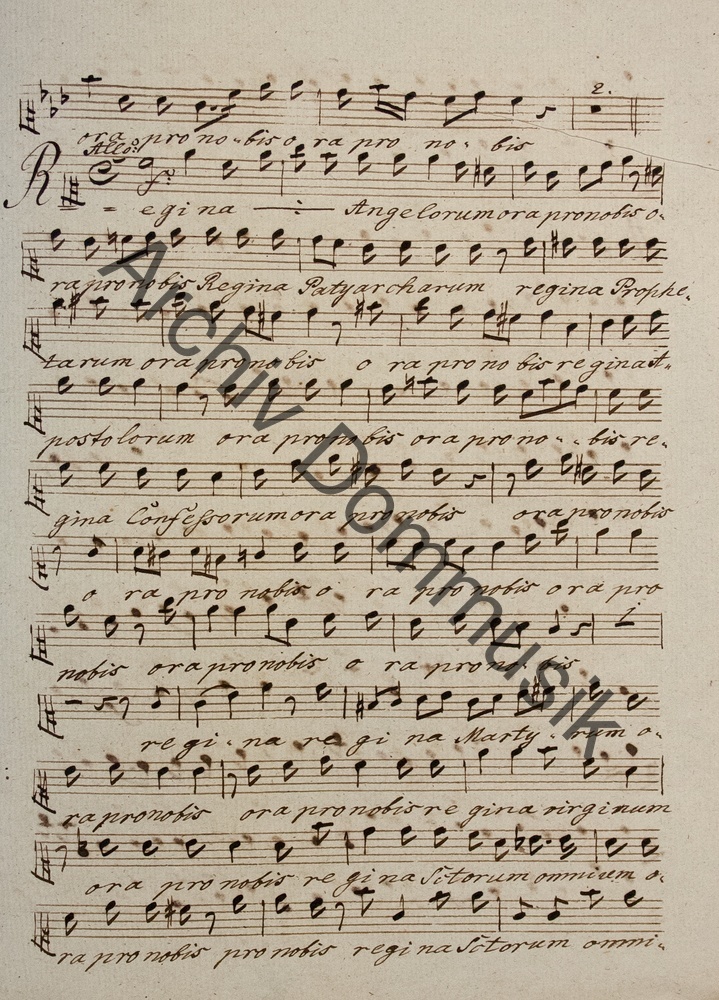 2.
ora pro no - bis o ra pro no - bis
Allo:
Regina Angelorum ora pro nobis o-
ra pro nobis Regina Patyarcharum regina Prophe-
tarum ora pro nobis o ra pro no bis regina A-
postolorum ora pro nobis ora pro no - - bis re-
gina Confessorum ora pro nobis ora pro nobis
o ra pro nobis o ra pro nobis ora pro
nobis ora pro nobis o ra pro no - bis
re gi - na re gi na Marty - rum o-
ra pro nobis ora pro nobis re gina virginum
ora pro nobis re gina Sctorum omnium o-
ra pro nobis pro nobis regina Sctorum omni-
Archiv Dommusik